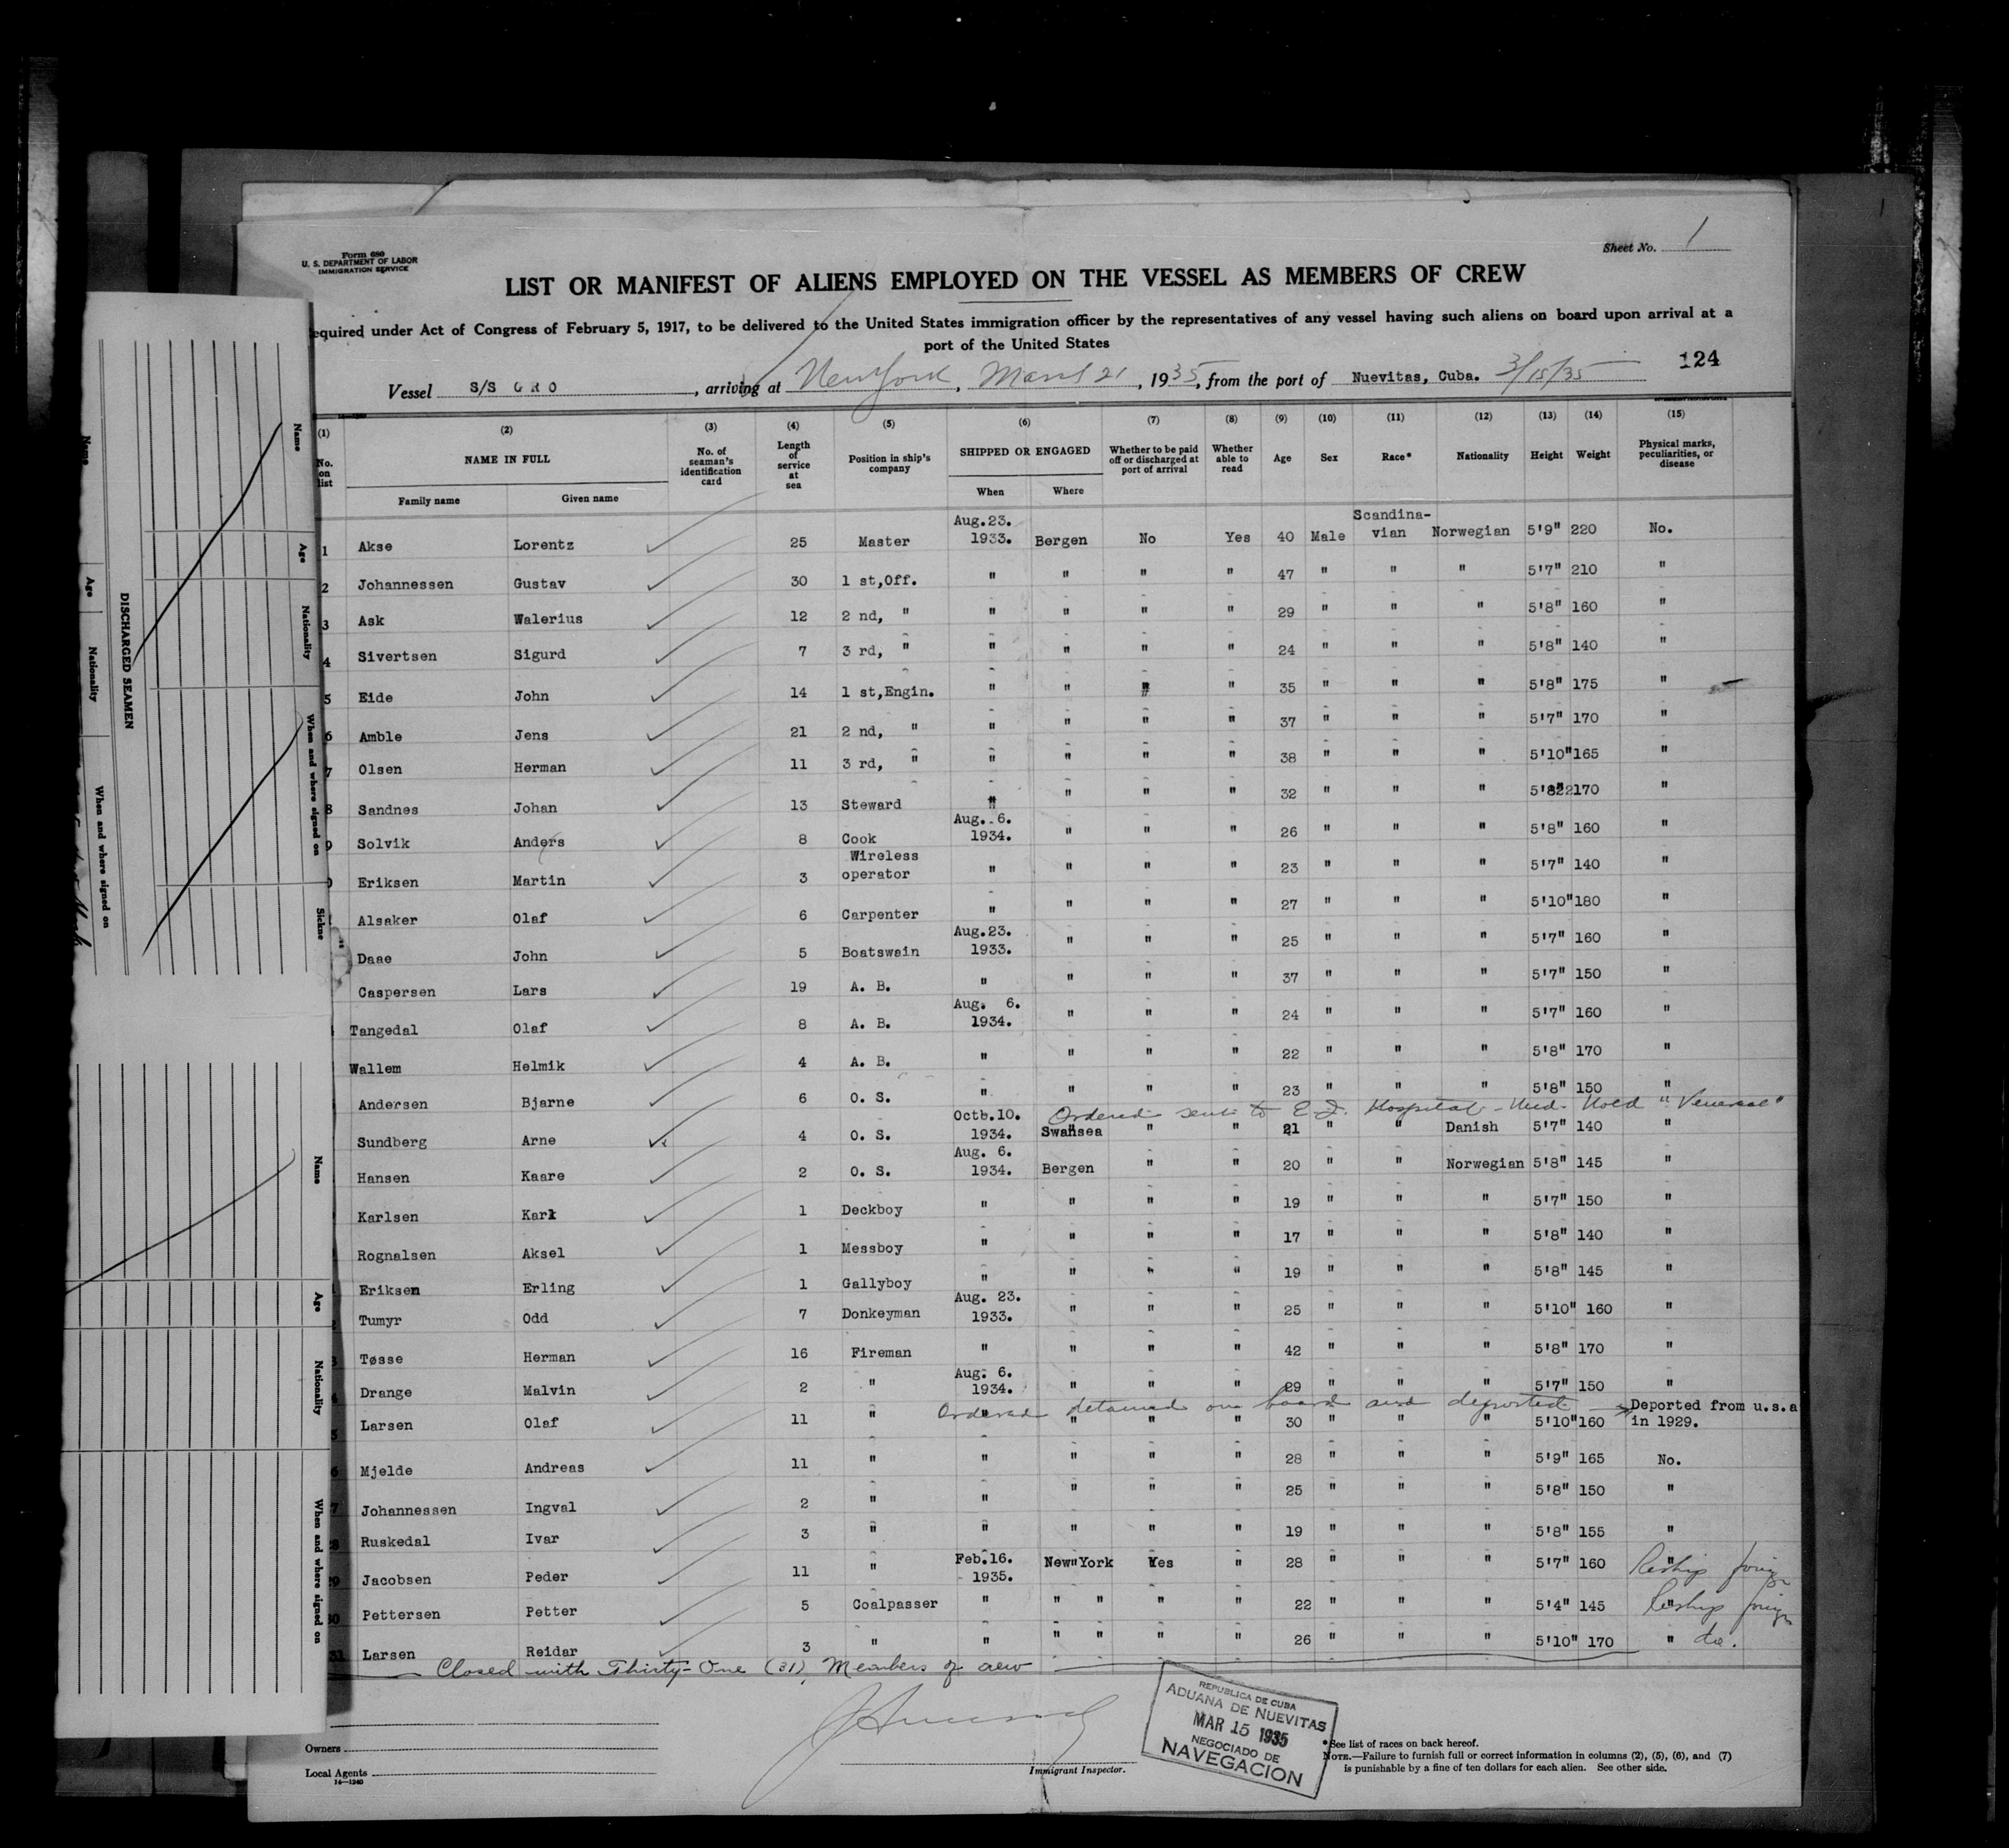 Form 680
U. S. DEPARTMENT OF LABOR
IMMIGRATION SERVICE
Sheet No. 1
LIST OR MANIFEST OF ALIENS EMPLOYED ON THE VESSEL AS MEMBERS OF CREW
equired under Act of Congress of February 5, 1917, to be delivered to the United States immigration officer by the representatives of any vessel having such aliens on board upon arrival at a
port of the United States
124
Vessel S/S GRO, arriving at New York, March 21, 1935, from the port of Nuevitas, Cuba. 3/15/35
(1) (2) (3) (4) (5) (6) (7) (8) (9) (10) (11) (12) (13) (14) (15)
No. on list NAME IN FULL Family name Given name No. of seaman's identification card Length of service at sea Position in ship's company SHIPPED OR ENGAGED When Where Whether to be paid off or discharged at port of arrival Whether able to read Age Sex Race* Nationality Height Weight Physical marks, peculiarities, or disease
1 Akse Lorentz 25 Master Aug.23. 1933. Bergen No Yes 40 Male Scandina-vian Norwegian 5'9" 220 No.
2 Johannessen Gustav 30 1 st,Off. " " " " 47 " " " 5'7" 210 "
3 Ask Walerius 12 2 nd, " " " " " 29 " " " 5'8" 160 "
4 Sivertsen Sigurd 7 3 rd, " " " " " 24 " " " 5'8" 140 "
5 Eide John 14 1 st,Engin. " " " " 35 " " " 5'8" 175 "
6 Amble Jens 21 2 nd, " " " " " 37 " " " 5'7" 170 "
7 Olsen Herman 11 3 rd, " " " " " 38 " " " 5'10" 165 "
8 Sandnes Johan 13 Steward " " " " 32 " " " 5'8" 170 "
9 Solvik Anders 8 Cook Aug. 6. 1934. " " " 26 " " " 5'8" 160 "
Eriksen Martin 3 Wireless operator " " " " 23 " " " 5'7" 140 "
Alsaker Olaf 6 Carpenter " " " " 27 " " " 5'10" 180 "
Daae John 5 Boatswain Aug.23. 1933. " " " 25 " " " 5'7" 160 "
Caspersen Lars 19 A. B. " " " " 37 " " " 5'7" 150 "
Tangedal Olaf 8 A. B. Aug. 6. 1934. " " " 24 " " " 5'7" 160 "
Wallem Helmik 4 A. B. " " " " 22 " " " 5'8" 170 "
Andersen Bjarne 6 O. S. " " " " 23 " " " 5'8" 150 "
Ordered sent to E.I. Hospital - Med. Hold "Venereal"
Sundberg Arne 4 O. S. Octb.10. 1934. Swansea " " 21 " " Danish 5'7" 140 "
Hansen Kaare 2 O. S. Aug. 6. 1934. Bergen " " 20 " " Norwegian 5'8" 145 "
Karlsen Karl 1 Deckboy " " " " 19 " " " 5'7" 150 "
Rognalsen Aksel 1 Messboy " " " " 17 " " " 5'8" 140 "
Eriksen Erling 1 Gallyboy " " " " 19 " " " 5'8" 145 "
Tumyr Odd 7 Donkeyman Aug. 23. 1933. " " " 25 " " " 5'10" 160 "
Tøsse Herman 16 Fireman " " " " 42 " " " 5'8" 170 "
Drange Malvin 2 " Aug. 6. 1934. " " " 29 " " " 5'7" 150 "
Ordered detained on board and deported
Larsen Olaf 11 " " " " " 30 " " " 5'10" 160 Deported from u.s.a in 1929.
Mjelde Andreas 11 " " " " " 28 " " " 5'9" 165 No.
7 Johannessen Ingval 2 " " " " " 25 " " " 5'8" 150 "
Ruskedal Ivar 3 " " " " " 19 " " " 5'8" 155 "
Jacobsen Peder 11 " Feb.16. 1935. New York Yes " 28 " " " 5'7" 160 " Reship foreign
30 Pettersen Petter 5 Coalpasser " " " " " 22 " " " 5'4" 145 " Reship foreign
31 Larsen Reidar 3 " " " " " " 26 " " " 5'10" 170 " do.
Closed with Thirty-One (31) Members of crew
REPUBLICA DE CUBA
ADUANA DE NUEVITAS
MAR 15 1935
NEGOCIADO DE
NAVEGACION
Owners
Local Agents
14—1240
Immigrant Inspector.
*See list of races on back hereof.
NOTE.—Failure to furnish full or correct information in columns (2), (5), (6), and (7)
is punishable by a fine of ten dollars for each alien. See other side.
DISCHARGED SEAMEN
Name Age Nationality When and where signed on
Name Age Nationality When and where signed on Sickne
Name Age Nationality When and where signed on